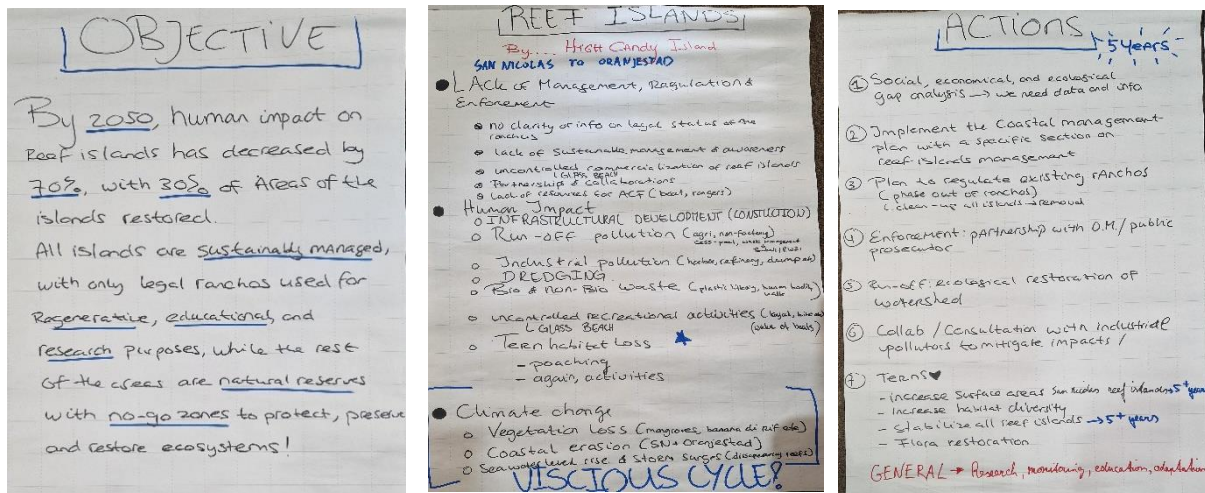 OBJECTIVE
By 2050, human impact on
Reef islands has decreased by
70%, with 30% of Areas of the
islands restored.
All islands are sustainably managed,
with only legal ranchos used for
Regenerative, educational, and
research purposes, while the rest
of the areas are natural reserves
with no-go zones to protect, preserve
and restore ecosystems!
REEF ISLANDS
By... High Candy Island
SAN NICOLAS TO ORANJESTAD
LAck of Management, Regulation &
Enforcement
no clarity or info on legal status of the
ranchos
Lack of sustainable management & awareness
uncontrolled commercialization of reef islands
GLASS BEACH
Partnerships & collaborations
Lack of resources for ACF (boat, rangers)
Human Impact
INFRASTRUCTURAL DEVELOPMENT (CONSTUCTION)
Run-off pollution (agri, non-factory)
cess-pool, waste management
Industrial pollution (harbor, refinery, dump)
DREDGING
Bio & non-Bio waste (plastic, human bodily
waste)
uncontrolled recreational activities
GLASS BEACH (wake of boats)
Tern habitat Loss
- poaching
- again, activities
Climate change
Vegetation Loss (mangroves, banana di Rif etc)
Coastal erosion (SN + Oranjestad)
Seawater level rise & storm surges (disappearing reefs)
VISCIOUS CYCLE!
ACTIONS
5 YeArs
1 Social, economical, and ecological
gap analysis → we need data and info
2 Implement the Coastal management
plan with a specific section on
reef islands management
3 Plan to regulate existing ranchos
(phase out of ranchos)
clean-up all islands → removal
4 Enforcement: partnership with O.M./public
prosecutor
5 Run-off: ecological restoration of
watershed
6 Collab / Consultation with industrial
pollutors to mitigate impacts /
7 Terns ♥
- increase surface areas San Nicolas reef islands → 5+ years
- Increase habitat diversity
- Stabilize all reef islands → 5+ years
- Flora restoration
GENERAL → Research, monitoring, education, adaptation